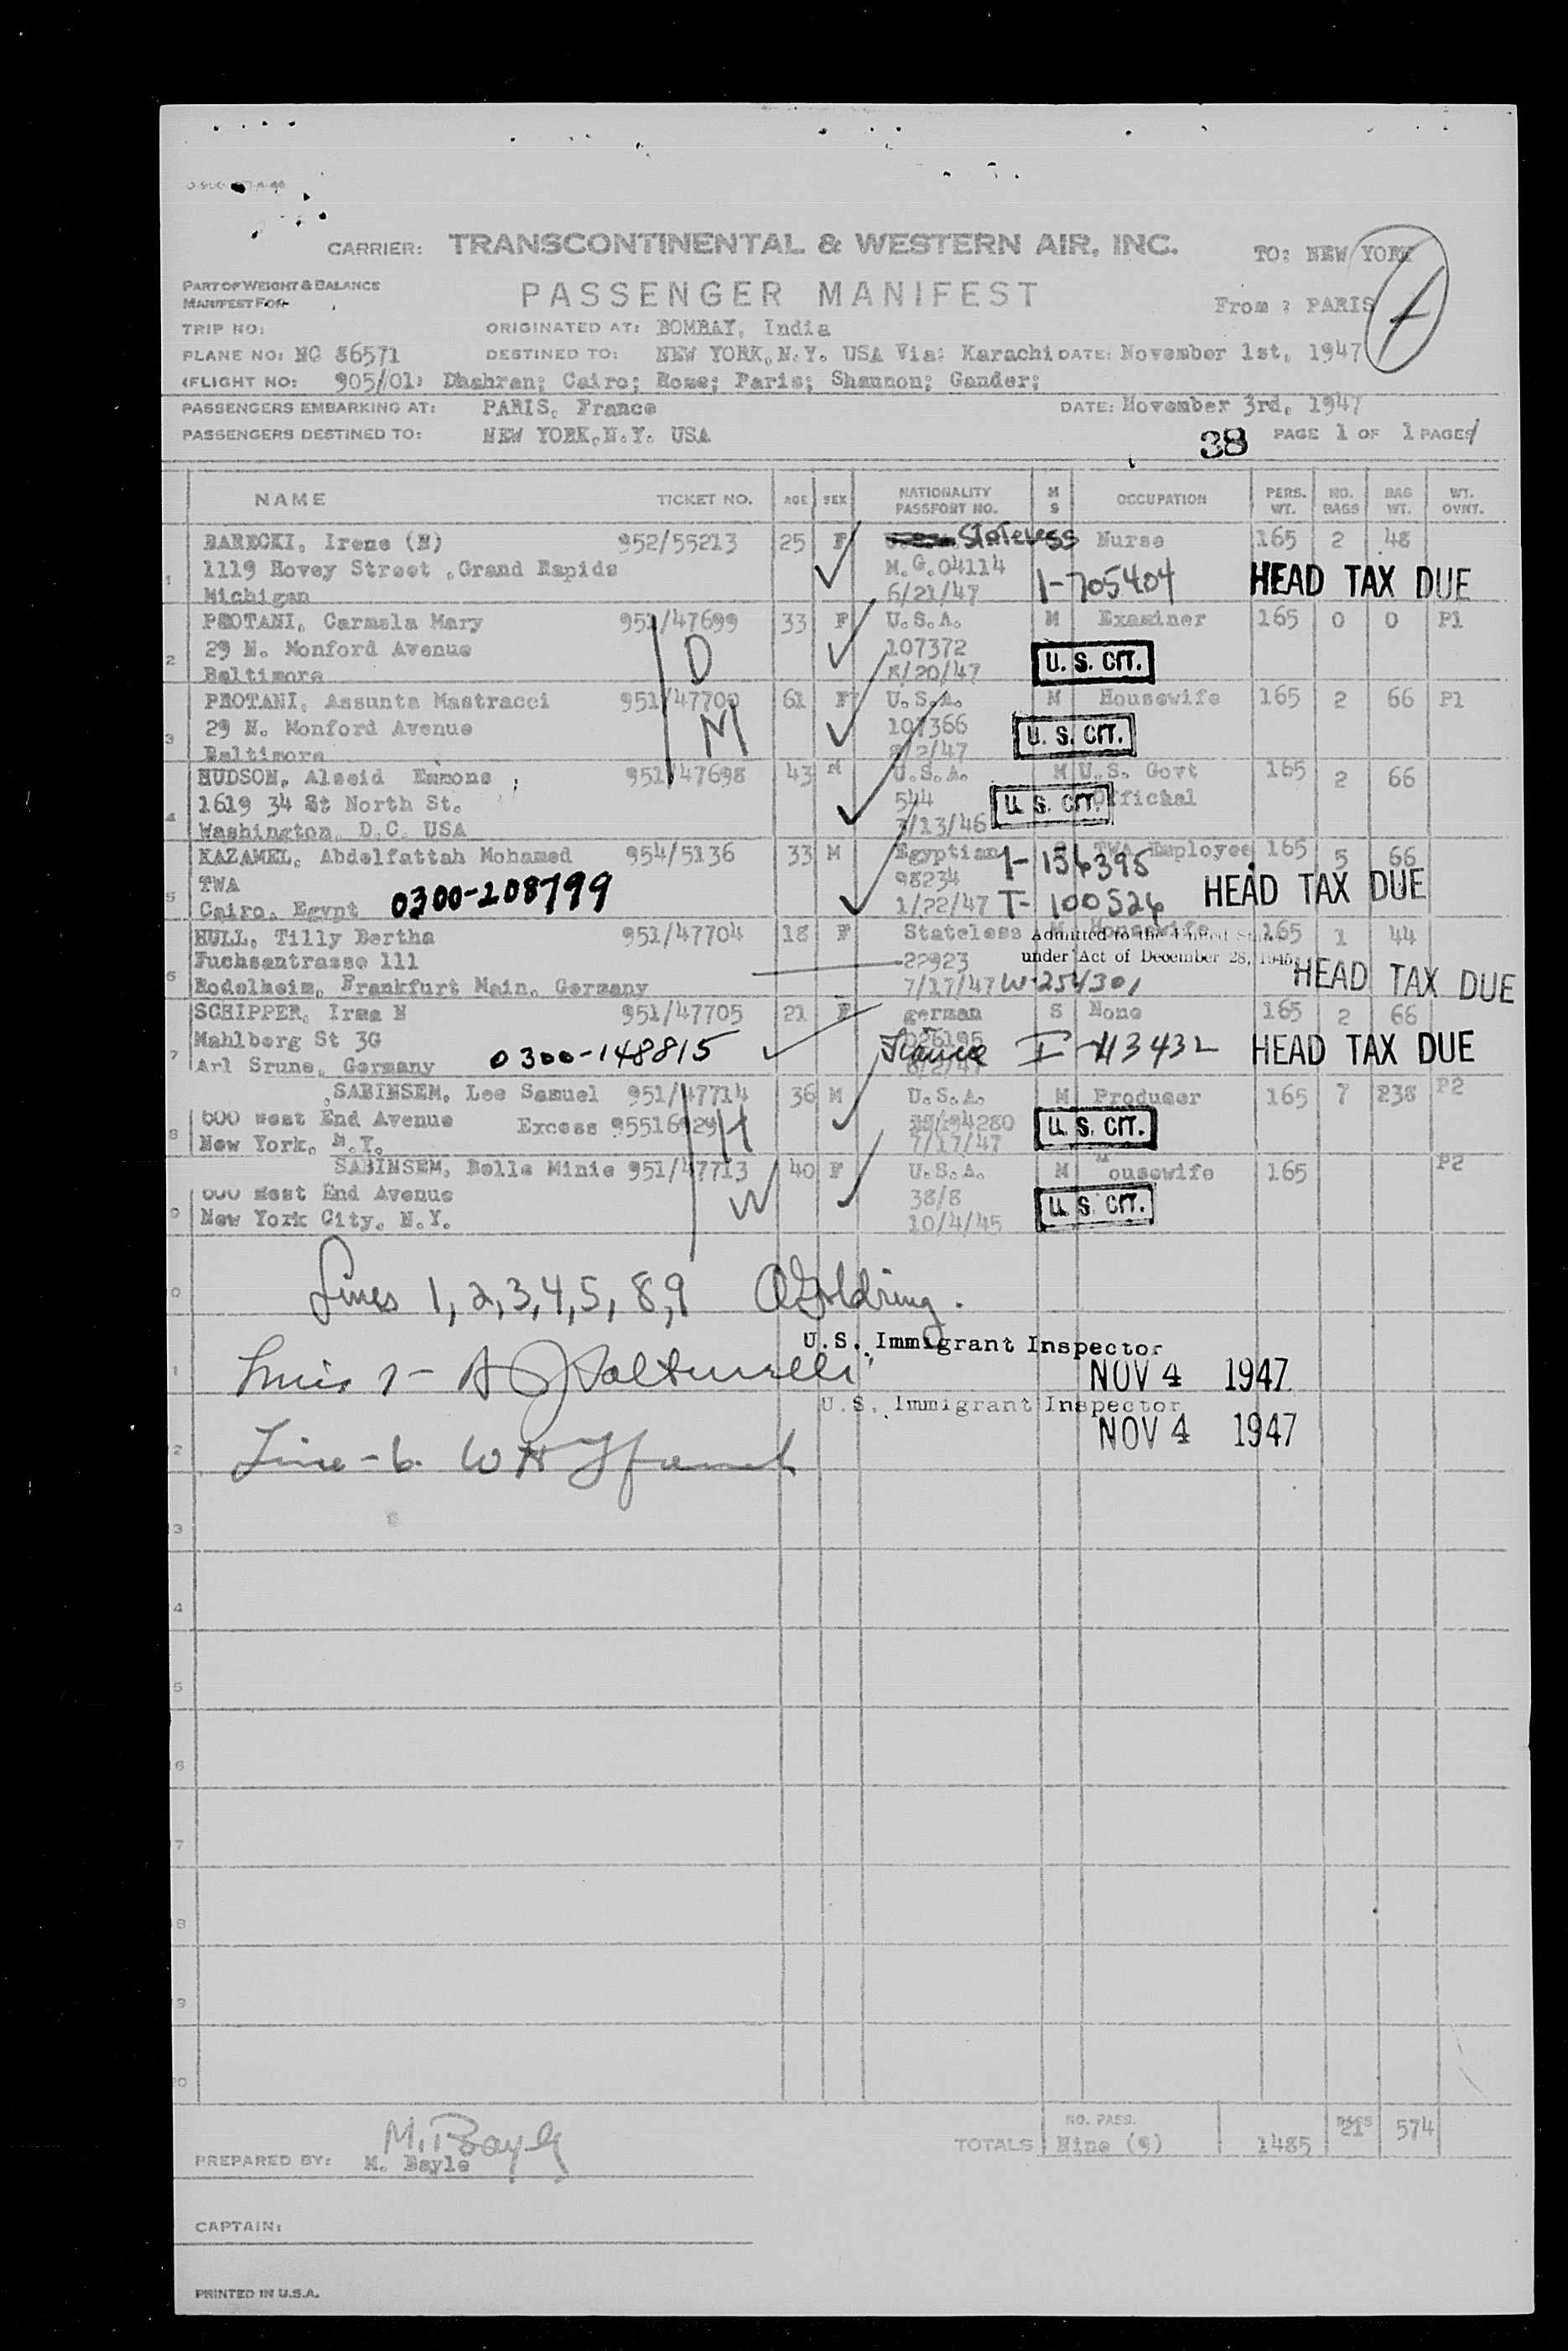 CARRIER: TRANSCONTINENTAL & WESTERN AIR, INC. TO: NEW YORK
PART OF WEIGHT & BALANCE
MANIFEST FOR
PASSENGER MANIFEST From : PARIS
TRIP NO: ORIGINATED AT: BOMBAY, India
PLANE NO: NC 86571 DESTINED TO: NEW YORK,N.Y. USA Via: Karachi DATE: November 1st, 1947
(FLIGHT NO: 905/01) Dhahran; Cairo; Rome; Paris; Shannon; Gander;
PASSENGERS EMBARKING AT: PARIS, France DATE: November 3rd, 1947
PASSENGERS DESTINED TO: NEW YORK,N.Y. USA 38 PAGE 1 OF 1 PAGES
NAME TICKET NO. AGE SEX NATIONALITY PASSPORT NO. M S OCCUPATION PERS. WT. NO. BAGS BAG WT. WT. OVNT.
BARECKI, Irene (N) 952/55213 25 F Stateless Nurse 165 2 48
1 1119 Hovey Street ,Grand Rapids M.G.04114 1-705404 HEAD TAX DUE
Michigan 6/21/47
PROTANI, Carmela Mary 951/47699 33 F U.S.A. M Examiner 165 0 0 P1
2 29 N. Monford Avenue D 107372 U. S. CIT.
Baltimore 8/20/47
PROTANI, Assunta Mastracci 951/47700 61 F U.S.A. M Housewife 165 2 66 P1
3 29 N. Monford Avenue M 107366 U. S. CIT.
Baltimore /2/47
HUDSON, Alseid Emmons 951/47698 43 M U.S.A. M U.S. Govt 165 2 66
4 1619 34 St North St. 544 U. S. CIT. Official
Washington, D.C. USA 7/13/46
KAZAMEL, Abdelfattah Mohamed 954/5136 33 M Egyptian 1-156395 TWA Employee 165 5 66
5 TWA 98234 HEAD TAX DUE
Cairo, Egypt 0300-208799 1/22/47 T-100526
HULL, Tilly Bertha 951/47704 18 F Stateless M Housewife 165 1 44
Admitted to the United States
6 Fuchsantrasse 111 22923 under Act of December 28, 1945
Rodelheim, Frankfurt Main, Germany 7/17/47 W-254301 HEAD TAX DUE
SCHIPPER, Irma N 951/47705 21 F german S None 165 2 66
7 Mahlberg St 3G 026195 I-413432 HEAD TAX DUE
Arl Srune, Germany 0300-148815 /2/47
SABINSEM, Lee Samuel 951/47714 36 M U.S.A. M Producer 165 7 238 P2
8 600 West End Avenue Excess 95516929 H 94280 U. S. CIT.
New York, N.Y. 7/17/47
SABINSEM, Belle Minie 951/47713 40 F U.S.A. M Housewife 165 P2
9 600 West End Avenue W 38/8 U. S. CIT.
New York City, N.Y. 10/4/45
0 Lines 1, 2, 3, 4, 5, 8, 9 A Goldring.
U.S. Immigrant Inspector
1 NOV 4 1947
U.S. Immigrant Inspector
NOV 4 1947
2 Line - 6.
3
4
5
6
7
8
9
20
TOTALS NO. PASS. Nine (9) 1485 BAGS 21 574
M. Bayle
PREPARED BY: M. Bayle
CAPTAIN:
PRINTED IN U.S.A.